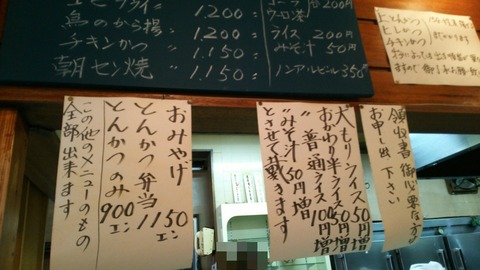 エビフライ 1,200
鳥のから揚 1,200
チキンかつ 1,150
朝セン焼 1,150
コーラ
ウーロン茶 各200円
ライス 200円
みそ汁 50円
ノンアルビール 350円
上とんかつ
ヒレかつ
チキンかつ
領収書御必要な方は
お申し出下さい
大もりライス50円増
おかわり半ライス50円増
〃普通ライス100円増
〃みそ汁50円増
とさせて頂きます
おみやげ
とんかつ弁当 1150エン
とんかつのみ 900エン
この他のメニューのもの
全部出来ます